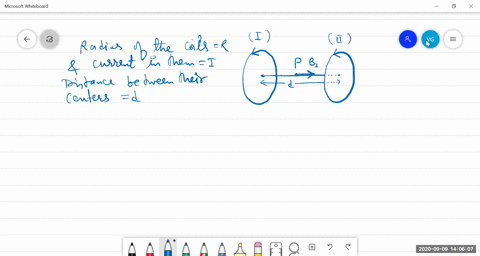 Microsoft Whiteboard
VG
Radius of the coils = R
& current in them = I
Distance between their
centers = d
(I)
(II)
P B₁
d
2020-09-09 14:06:07